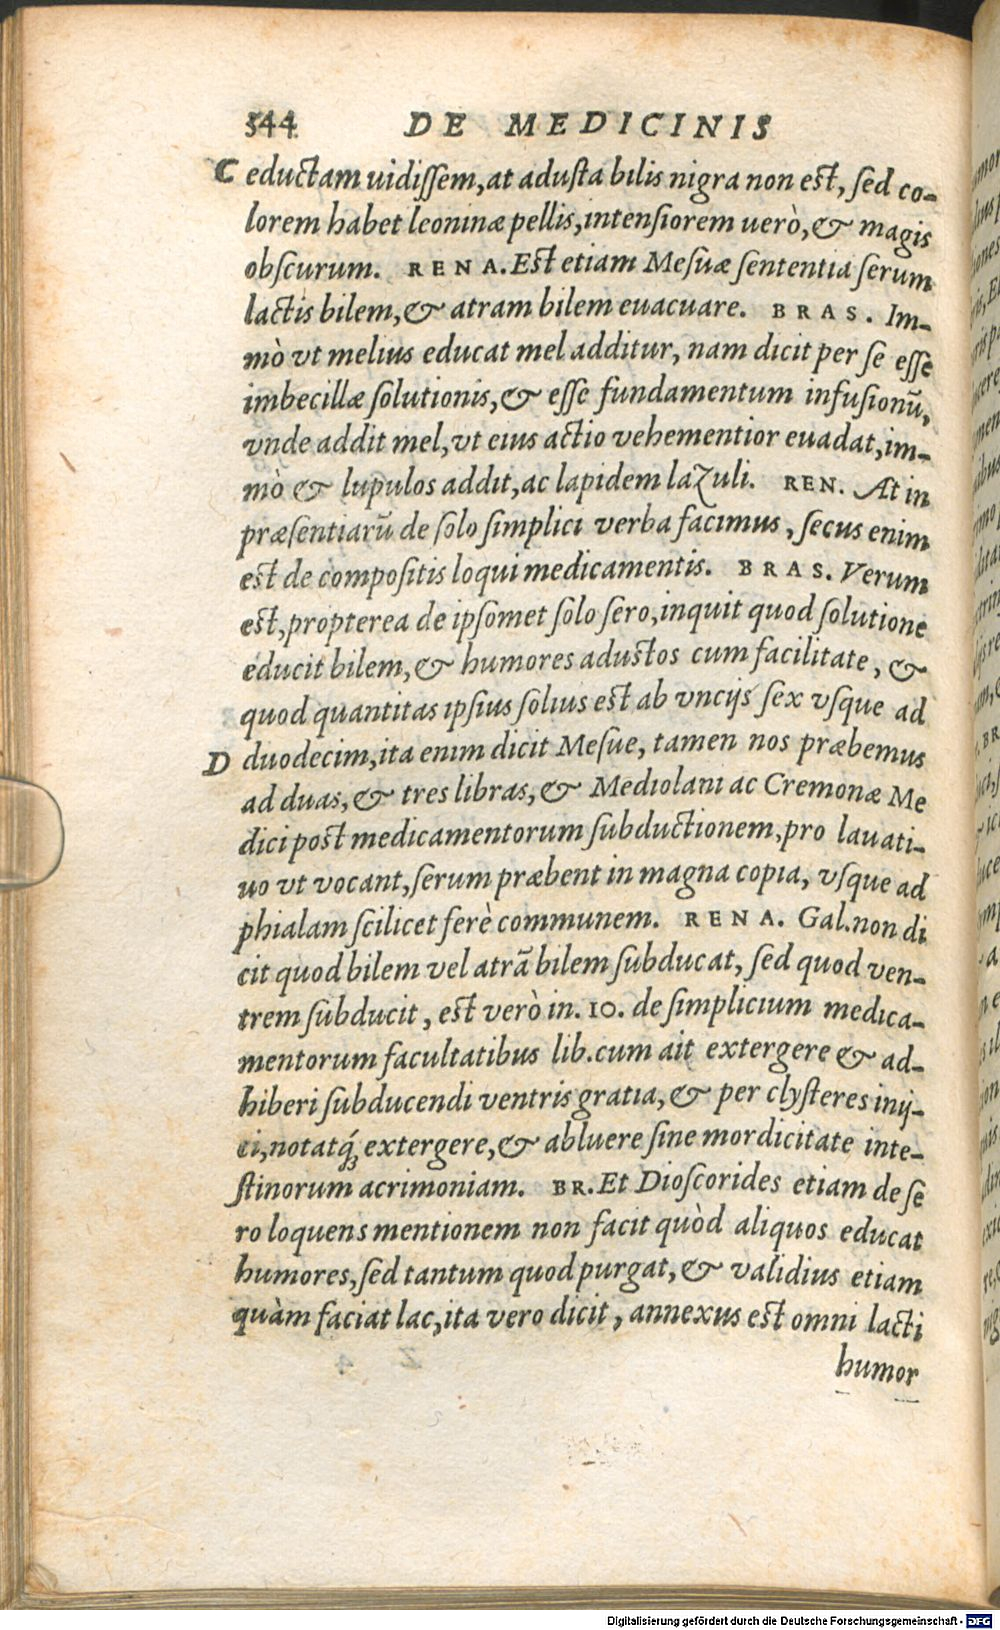 544 DE MEDICINIS
C eductam uidissem, at adusta bilis nigra non est, sed co-
lorem habet leoninæ pellis, intensiorem uerò, & magis
obscurum. RENA. Est etiam Mesuæ sententia serum
lactis bilem, & atram bilem euacuare. BRAS. Im-
mò vt melius educat mel additur, nam dicit per se esse
imbecillæ solutionis, & esse fundamentum infusionū,
vnde addit mel, vt eius actio vehementior euadat, im-
mò & lupulos addit, ac lapidem lazuli. REN. At in
præsentiarū de solo simplici verba facimus, secus enim
est de compositis loqui medicamentis. BRAS. Verum
est, propterea de ipsomet solo sero, inquit quod solutione
educit bilem, & humores adustos cum facilitate, &
quod quantitas ipsius solius est ab vncijs sex vsque ad
D duodecim, ita enim dicit Mesue, tamen nos præbemus
ad duas, & tres libras, & Mediolani ac Cremonæ Me
dici post medicamentorum subductionem, pro lauati-
uo vt vocant, serum præbent in magna copia, vsque ad
phialam scilicet ferè communem. RENA. Gal. non di
cit quod bilem vel atrā bilem subducat, sed quod ven-
trem subducit, est verò in. 10. de simplicium medica-
mentorum facultatibus lib. cum ait extergere & ad-
hiberi subducendi ventris gratia, & per clysteres inij-
ci, notatq́; extergere, & abluere sine mordicitate inte-
stinorum acrimoniam. BR. Et Dioscorides etiam de se
ro loquens mentionem non facit quòd aliquos educat
humores, sed tantum quod purgat, & validius etiam
quàm faciat lac, ita vero dicit, annexus est omni lacti
humor
Digitalisierung gefördert durch die Deutsche Forschungsgemeinschaft - DFG